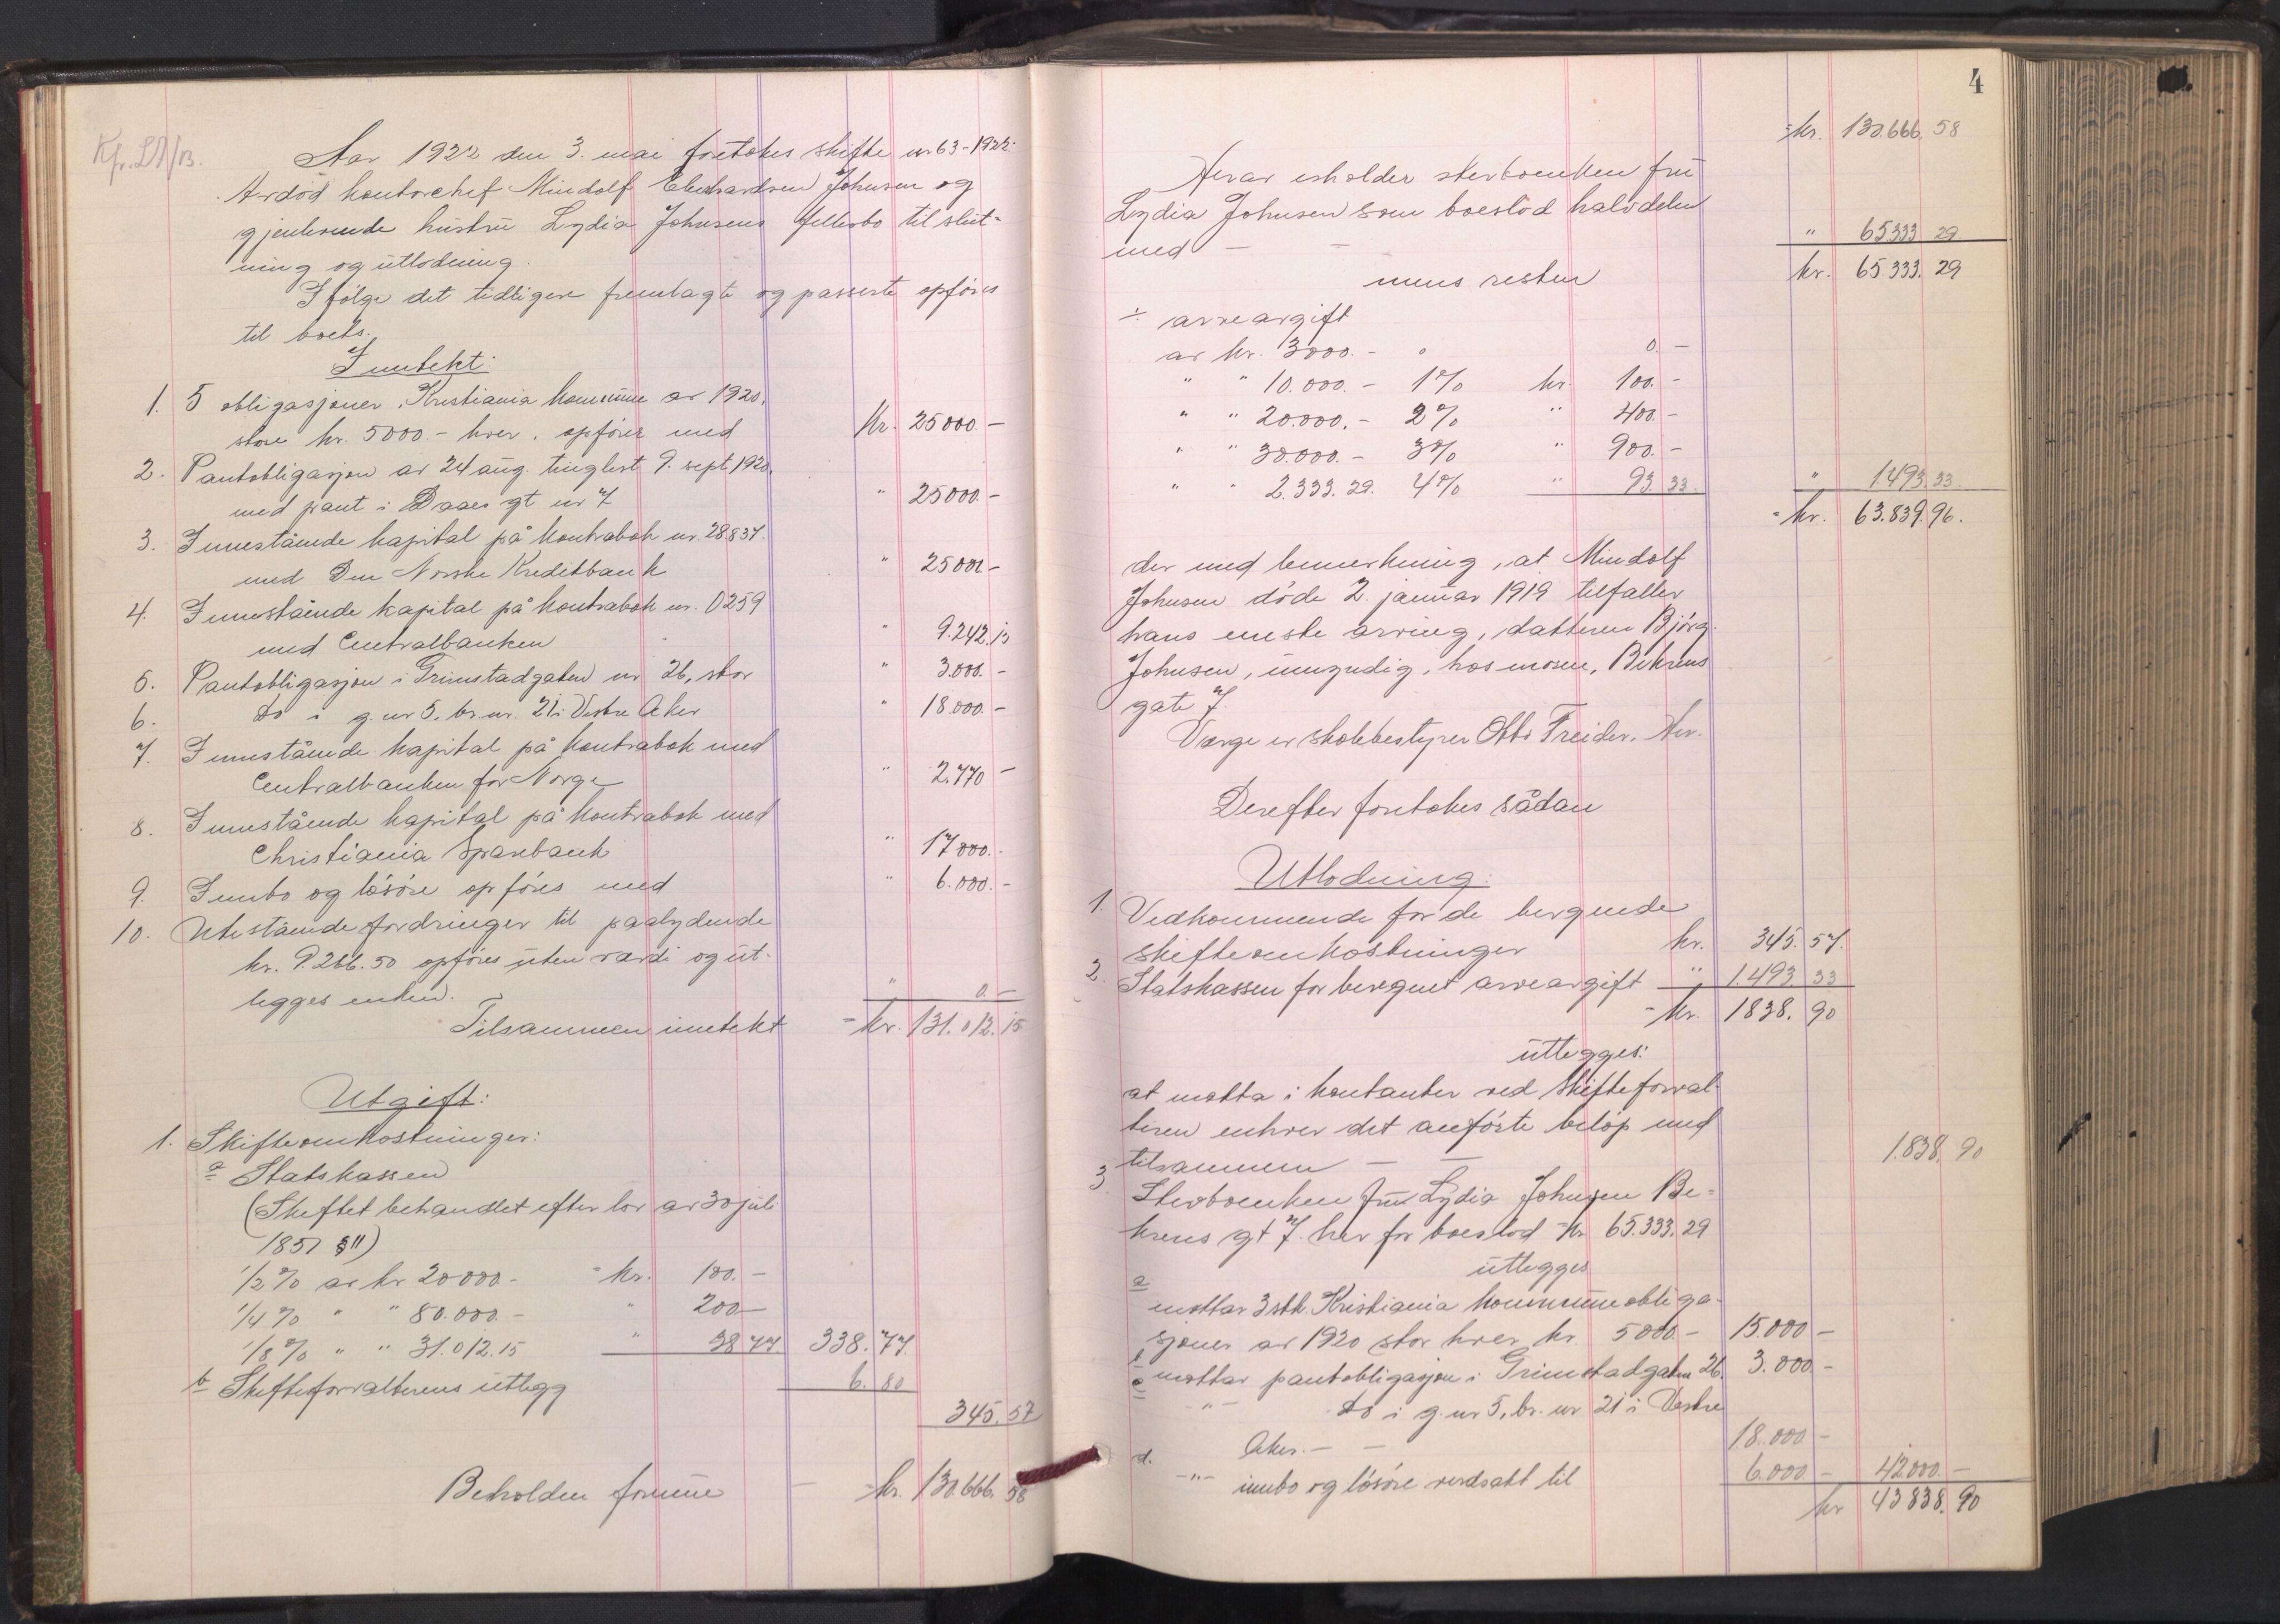 Kfr. LA/13.
Aar 1922 den 3. mai foretokes skifte nr 63-1922:
Avdöd kontorchef Mindolf Eberhardsen Johnsen og
gjenlevende hustru Lydia Johnsens fellesbo til slut-
ning og utlodning.
Ifölge det tidligere fremlagte og passerte opföres
til boets.
Inntekt:
1. 5 obligasjoner i Kristiania kommune av 1920,
store kr. 5000.- hver, opföres med Kr. 25000.-
2. Pantobligasjon av 24 aug. tinglest 9. sept. 1920.
med pant i Daaes gt nr 7 " 25000.-
3. Innestående kapital på kontrabok nr. 28837.
med Den Norske Kreditbank " 25000.-
4. Innestående kapital på kontrabok nr. 0259
med Centralbanken " 9.242.15
5. Pantobligasjon i Grimstadgaten nr 26, stor " 3.000.-
6. do i g.nr 5, br.nr. 21 i Vestre Aker " 18.000.-
7. Innestående kapital på kontrabok med
Centralbanken for Norge " 2.770 -
8. Innestående kapital på kontrabok med
Christiania Sparebank " 17000.-
9. Innbo og lösöre opföres med " 6.000.-
10. Utestående fordringer til paalydende
kr. 9.266.50 opföres uten værdi og ut-
legges enken. " 0.-
Tilsammen inntekt = kr. 131.012.15
Utgift:
1. Skifteomkostninger:
a Statskassen
(Skiftet behandlet efter lov av 30 juli
1851 § 11)
1/2 % av kr 20000.- = kr. 100.-
1/4 % " " 80.000.- " 200.-
1/8 % " " 31.012.15 " 38 77 338.77.
b Skifteforvalterens utlegg 6.80
345.57
Beholden formue - = kr. 130.666.58
4
= kr. 130.666.58
Herav erholder stervboenken fru
Lydia Johnsen som boeslod halvdelen
med - - " 65333 29
mens resten kr. 65333.29
÷ arveavgift
av kr. 3000.- 0 0.-
" " 10.000.- 1% kr. 100.-
" " 20.000.- 2% " 400.-
" " 30.000.- 3% " 900.-
" " 2.333.29. 4% " 93.33. " 1493.33.
= kr. 63.839.96.
der med bemerkning, at Mindolf
Johnsen döde 2. januar 1919 tilfaller
hans eneste arving, datteren Björg
Johnsen, umyndig, hos moren, Behrens
gate 7.
Værge er skolebestyrer Otto Treider, her.
Derefter foretokes sådan
Utlodning:
1. Vedkommende for de beregnede
skifteomkostninger kr. 345.57.
2. Statskassen for beregnet arveavgift " 1493 33
= kr. 1838.90
utlegges:
at motta i kontanter ved skifteforval-
teren enhver det anförte belöp med
tilsammen - - 1.838.90
3 Stervboenken fru Lydia Johnsen Be-
hrens gt 7. her for boeslod kr. 65.333.29
utlegges
a mottar 3 stk. Kristiania kommuneobliga-
sjoner av 1920 stor hver kr. 5000.- 15.000 -
b mottar pantobligasjon i Grimstadgaten 26. 3.000.-
c -"- do i g.nr 5, br. nr 21 i Vestre
Aker. - - 18.000 -
d. -"- innbo og lösöre verdsatt til 6.000 - 42000.-
kr 43838.90